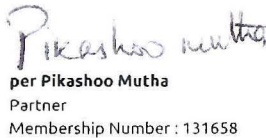 Pikashoo Mutha
per Pikashoo Mutha
Partner
Membership Number : 131658